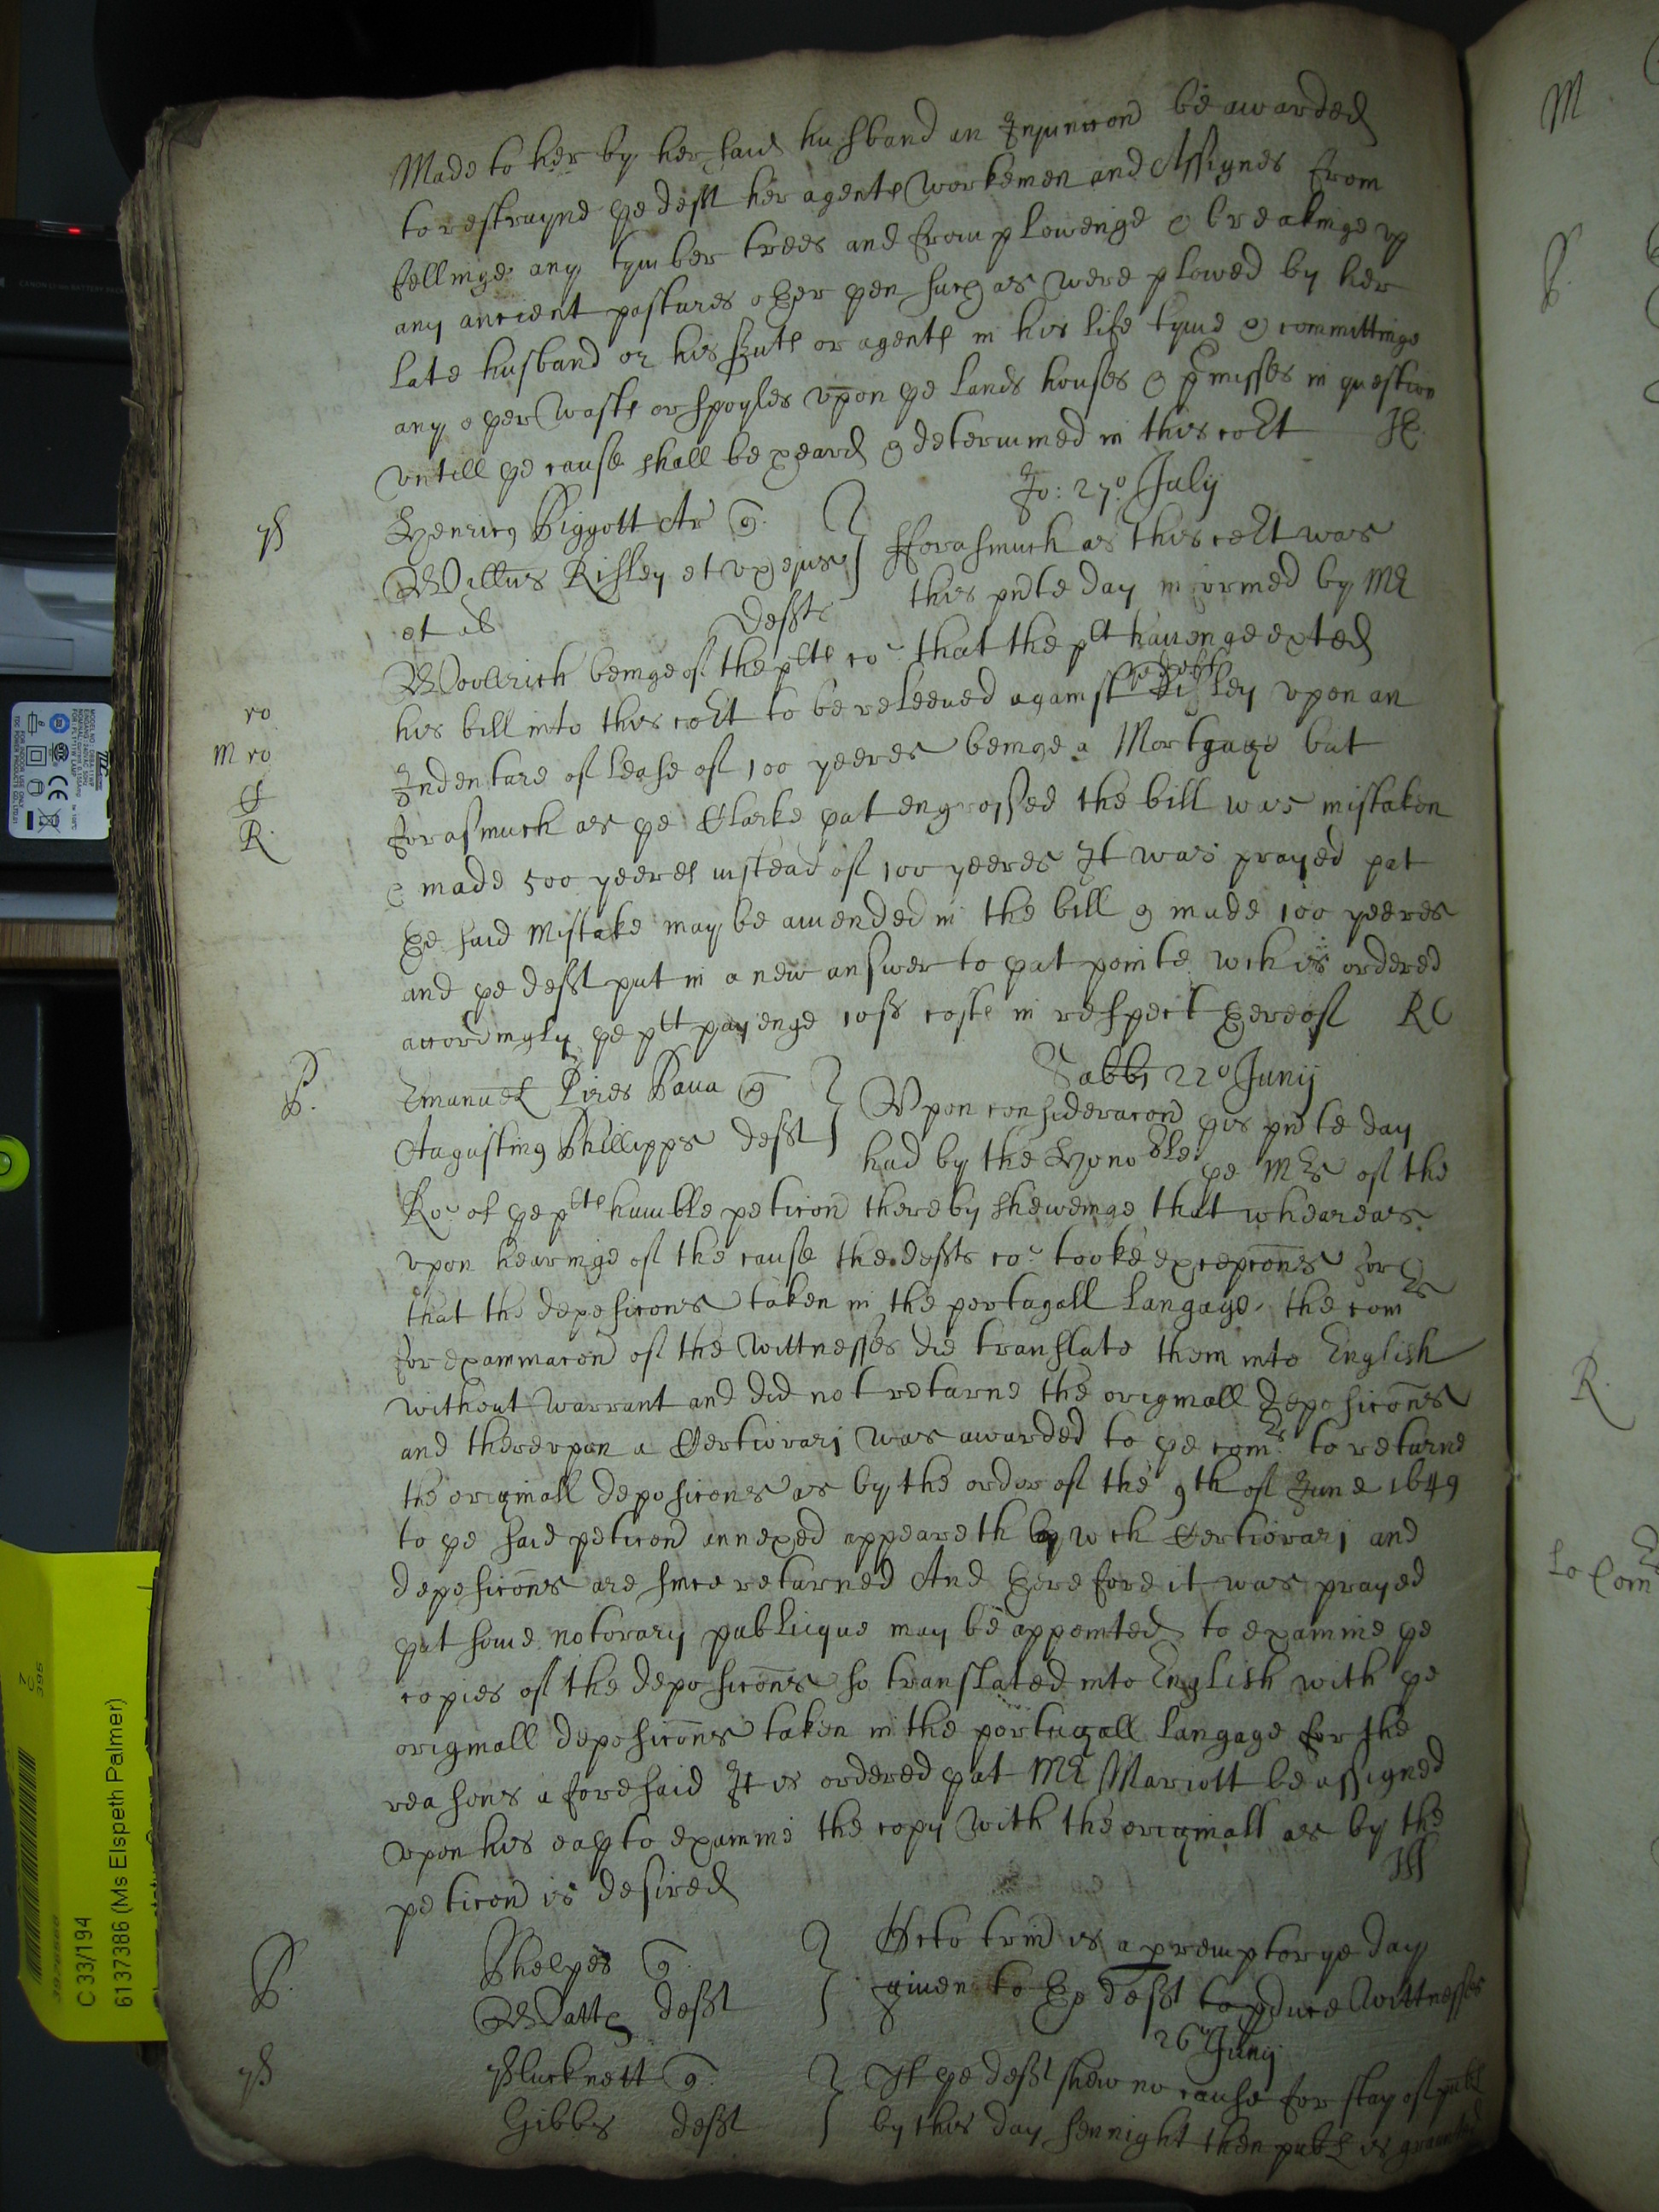 Made to her by her said husband an Iniunccon be awarded
to restrayne ye deft her agents workemen and Assignes from
fellinge any tymber trees and from plowenge & breakinge up
any ancient pastures other yen such as were plowed by her
late husband or his svts or agents in his life tyme & committinge
any oyer waste or spoyles upon ye lands houses & pmisses in question
untill ye cause shall be heard & determined in this cort
Jo: 27o July
Henricus Piggott Ar q
Willus Risley et ux ejus
et al defts
fforasmuch as this cort was
this pnte day informed by Mr
Woollrich beinge of the plts co: that the plt havenge exted
his bill into this cort to be releeved against Risley upon an
ye deft
Indenture of lease of 100 yeeres beinge a Mortgage but
forasmuch as ye Clarke yat engrossed the bill was mistaken
& made 500 yeeres instead of 100 yeeres It was prayed yat
the said Mistake may be amended in the bill & made 100 yeeres
and ye deft put in a new answer to yat pointe wch is ordered
accordingly ye plt payenge 10ss costs in respect thereof RC
Sabbi 22o Junij
Emanuel Pires Pava q
Augustinus Phillipps deft
Upon consideracon yis pnte day
had by the Honoble ye Mr of the
Ro: of ye plts humble peticon thereby shewenge that wheareas
upon hearinge of the cause the defts co: tooke excepcons for
that the deposicons taken in the portugall langage, the comrs
for examinacon of the wittnesses did translate them into English
without warrant and did not returne the originall deposicons
and thereupon a Certiorari was awarded to ye comrs to returne
the originall deposicons as by the order of the 9th of June 1649
to ye said peticon annexed appeareth by wch Certiorari and
deposicons are since returned And therefore it was prayed
yat some notorary publique may be appointed to examine ye
copies of the deposicons so translated into English with ye
originall deposicons taken in the portugall langage for the
reasons aforesaid It is ordered yat Mr Mariott be assigned
upon his oath to examine the copy with the originall as by the
peticon is desired
Phelpes q
Watts deft
Octo trin is a premptorye day
given to the deft to pduce wittnesses
26o Junij
Plucknett q
Gibbs deft
If ye deft shew no cause for stay of publ
by this day sennight then publ is graunted
C 33/194
6137386 (Ms Elspeth Palmer)